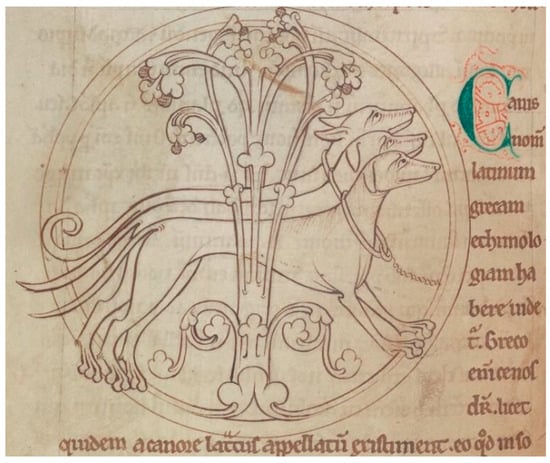 Canis
nom̄
latinum
grecam
ethimolo
giam ha
bere uide
t̄. Greco
em̄ cenos
dr̄. licet
quidem a canore lat̄tus appellatū existiment. eo qd̄ in so